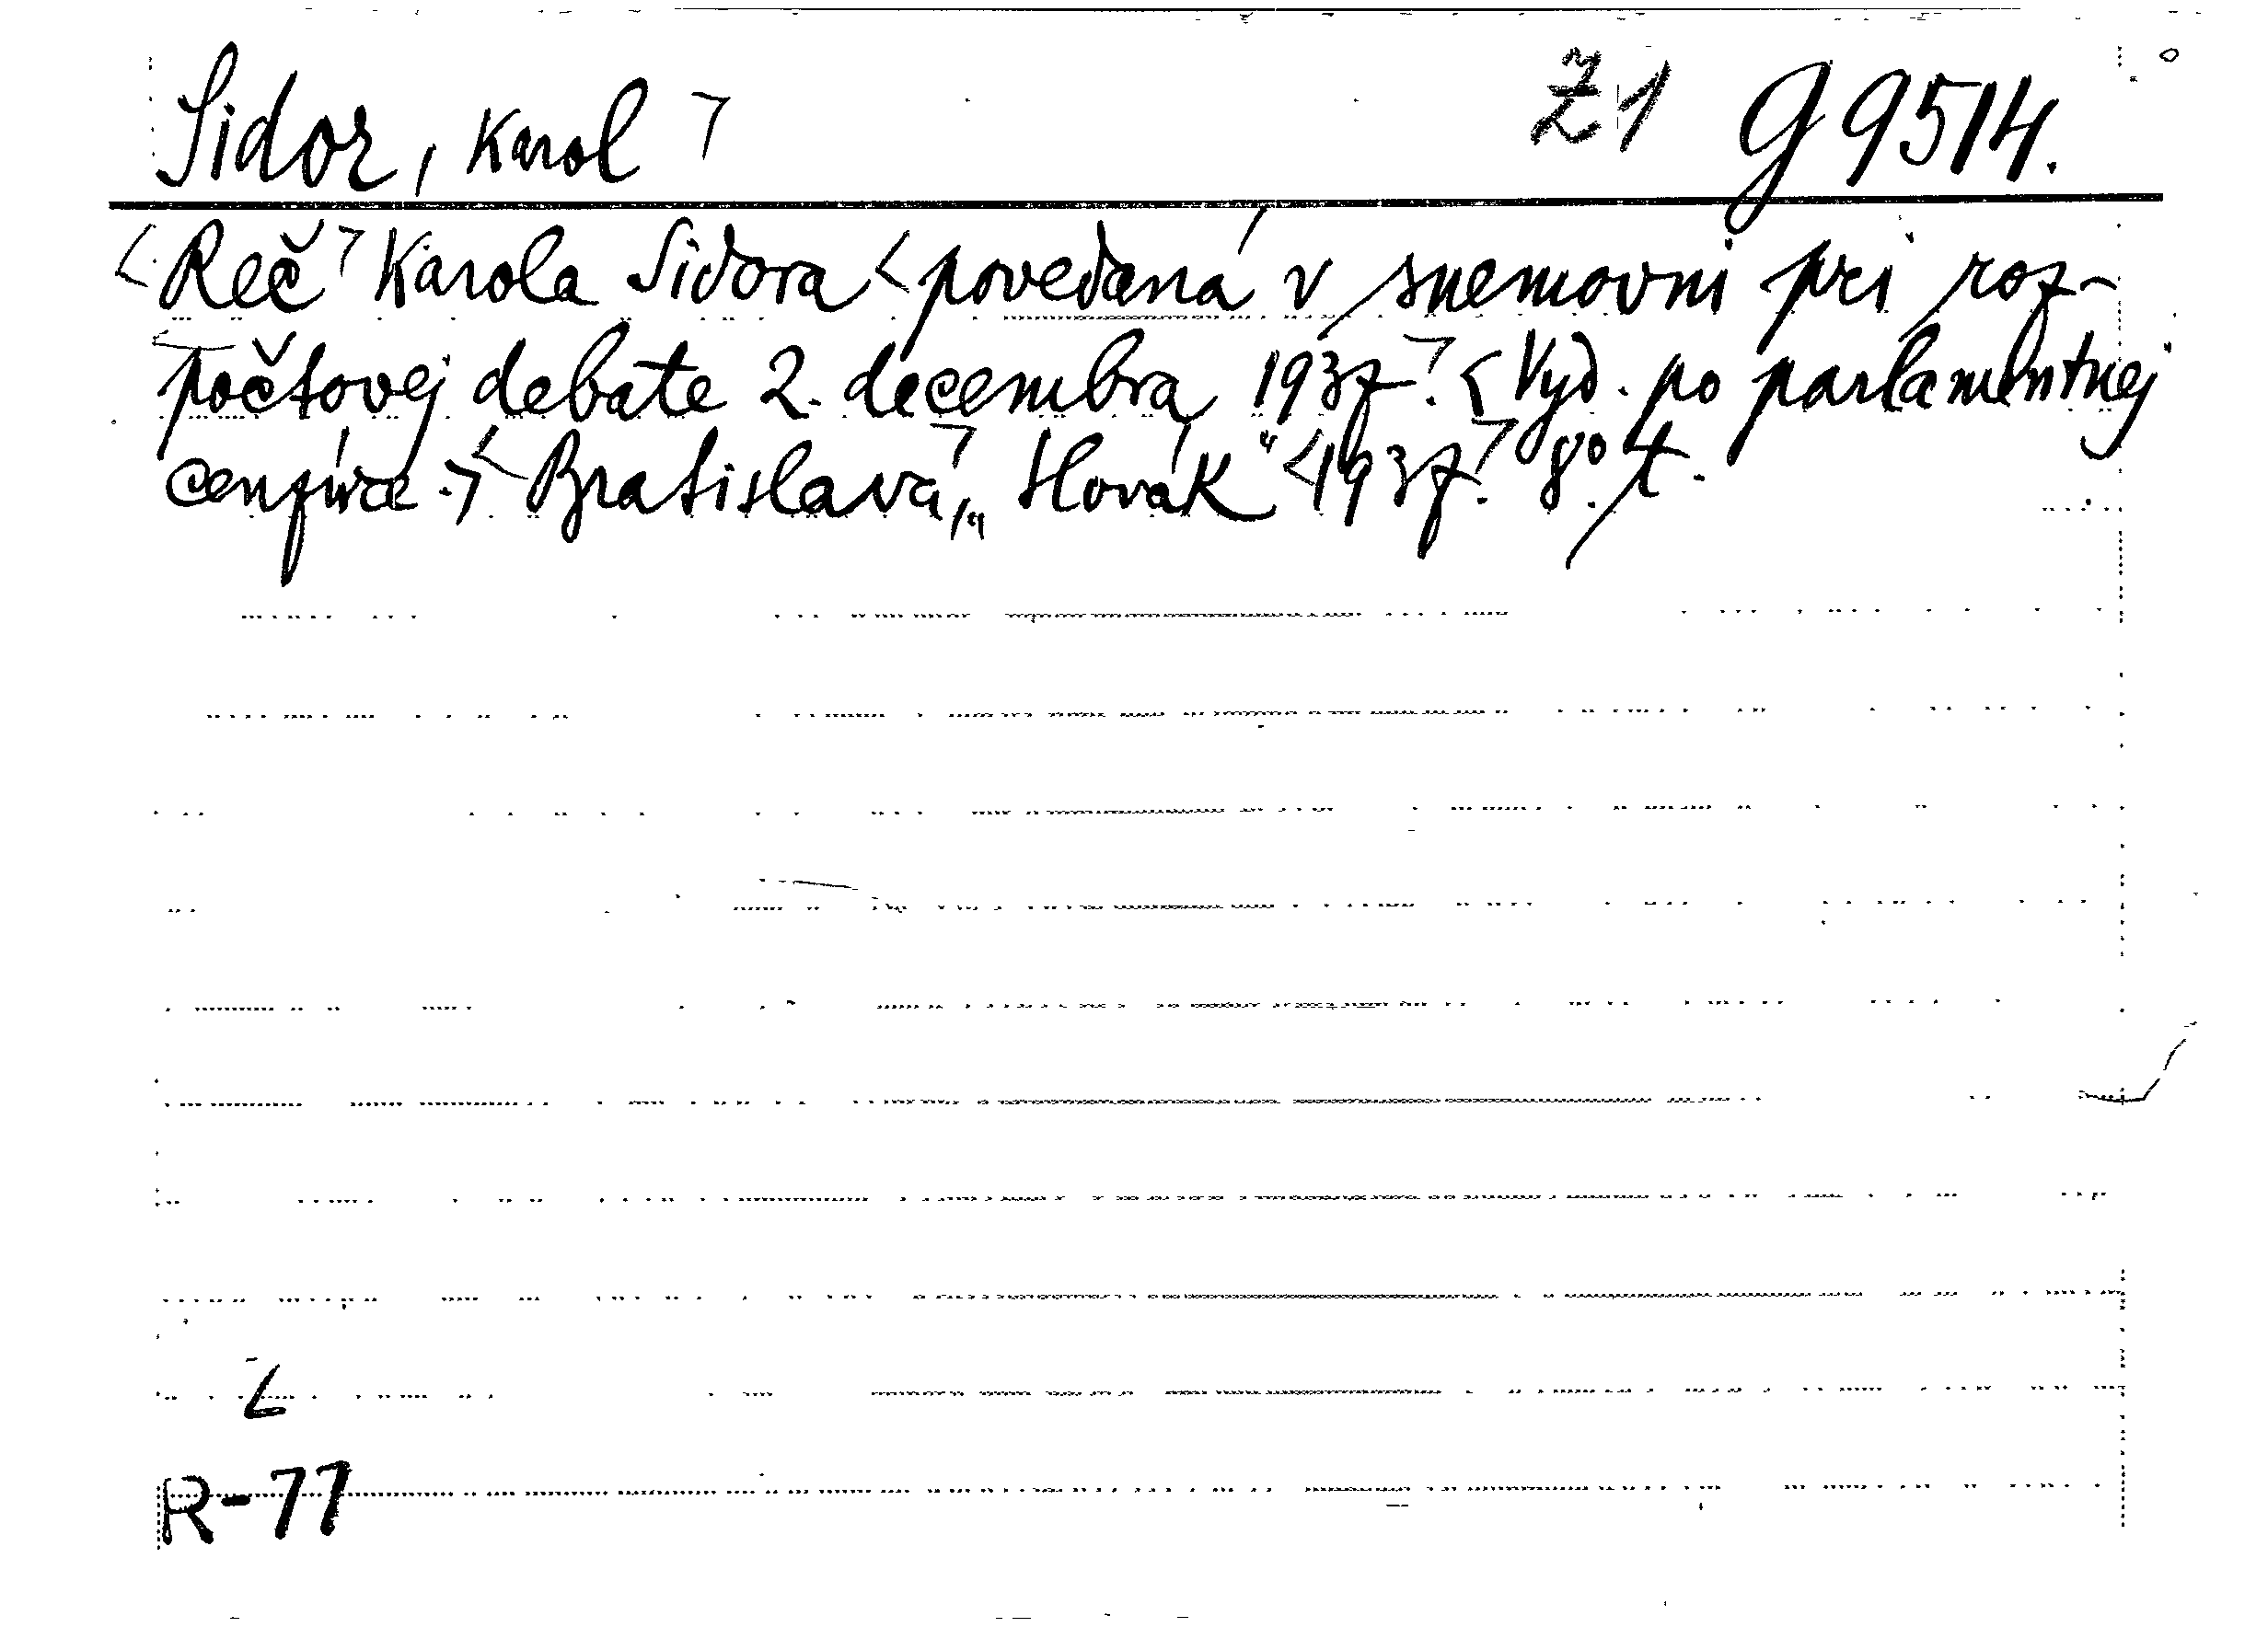 Sidor, Karol ㄱ Ž1 G 9514.
<Reč> Karola Sidora <povedaná v snemovni pri roz-
počtovej debate 2. decembra 1937.> <Vyd. po parlamentnej
cenzúre.> <Bratislava>, „Slovák“ <1937.> 8°. t.
L
R-77